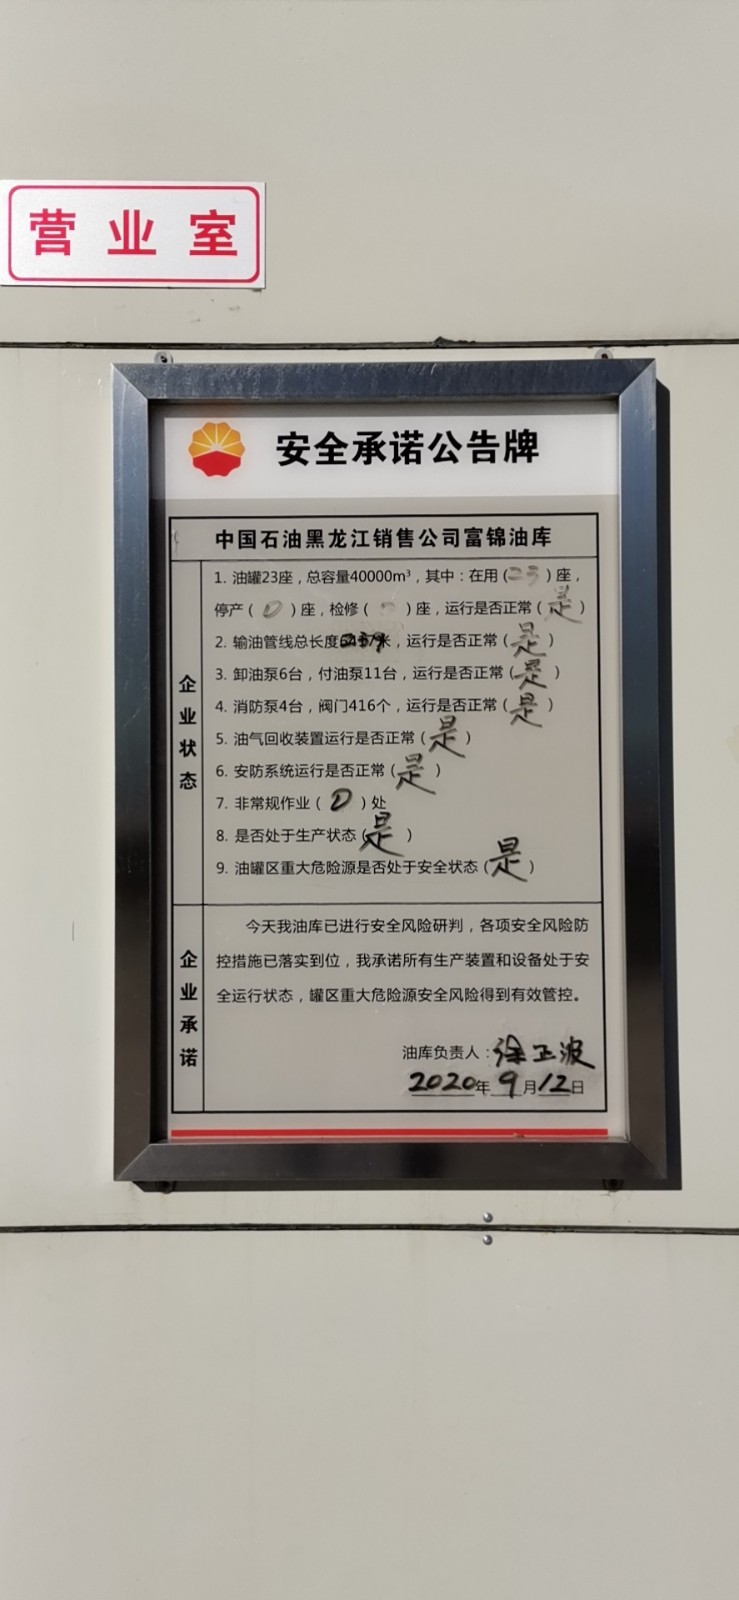 营业室
安全承诺公告牌
中国石油黑龙江销售公司富锦油库
企业状态
1. 油罐23座，总容量40000m³，其中：在用（23）座，
停产（0）座，检修（0）座，运行是否正常（是）
2. 输油管线总长度米，运行是否正常（是）
3. 卸油泵6台，付油泵11台，运行是否正常（是）
4. 消防泵4台，阀门416个，运行是否正常（是）
5. 油气回收装置运行是否正常（是）
6. 安防系统运行是否正常（是）
7. 非常规作业（0）处
8. 是否处于生产状态（是）
9. 油罐区重大危险源是否处于安全状态（是）
企业承诺
今天我油库已进行安全风险研判，各项安全风险防
控措施已落实到位，我承诺所有生产装置和设备处于安
全运行状态，罐区重大危险源安全风险得到有效管控。
油库负责人：徐正波
2020年9月12日